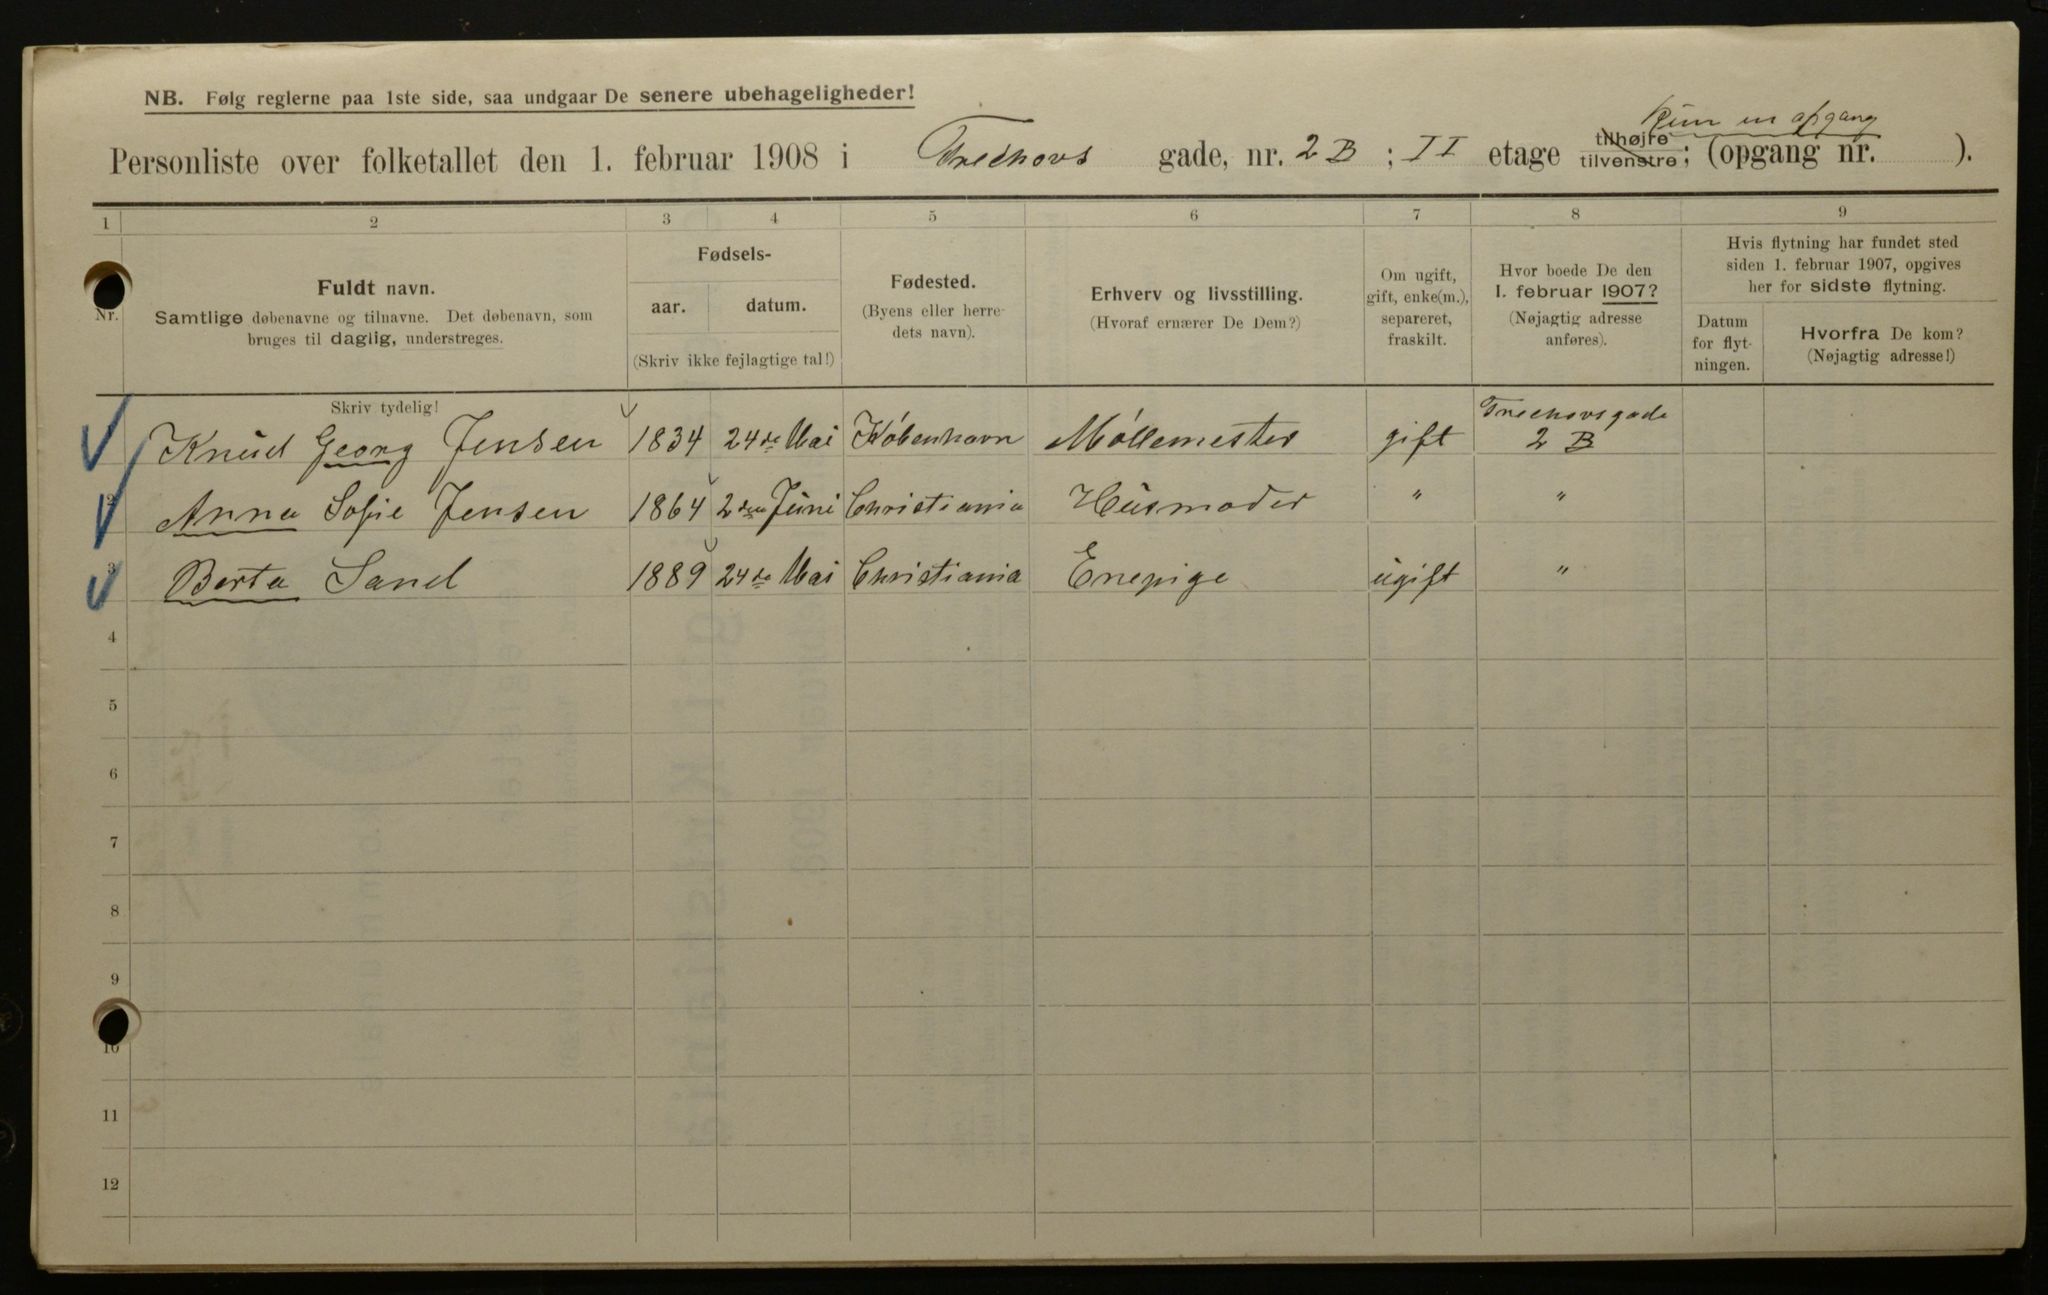 NB. Følg reglerne paa 1ste side, saa undgaar De senere ubehageligheder!
Kun en opgang
Personliste over folketallet den 1. februar 1908 i Treschovs gade, nr. 2 B ; II etage tilhøjre tilvenstre; (opgang nr. ).
1 2 3 4 5 6 7 8 9
Nr.
Fuldt navn.
Samtlige døbenavne og tilnavne. Det døbenavn, som
bruges til daglig, understreges.
Fødsels-
aar. datum.
(Skriv ikke fejlagtige tal!)
Fødested.
(Byens eller herre-
dets navn).
Erhverv og livsstilling.
(Hvoraf ernærer De Dem?)
Om ugift,
gift, enke(m.),
separeret,
fraskilt.
Hvor boede De den
1. februar 1907?
(Nøjagtig adresse
anføres).
Hvis flytning har fundet sted
siden 1. februar 1907, opgives
her for sidste flytning.
Datum
for flyt-
ningen.
Hvorfra De kom?
(Nøjagtig adresse!)
Skriv tydelig!
Knud Georg Jensen 1834 24de Mai København Møllemester gift Treschovsgade 2 B
2 Anna Sofie Jensen 1864 2den Juni Christiania Husmoder " "
3 Berta Sand 1889 24de Mai Christiania Enepige ugift "
4
5
6
7
8
9
10
11
12